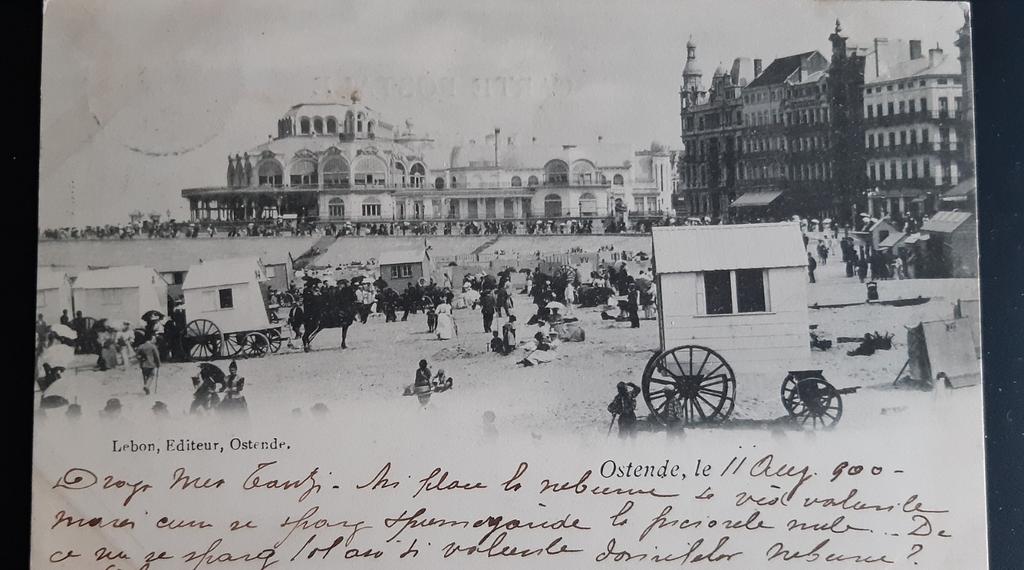 Lebon, Editeur, Ostende.
Ostende, le 11 Aug. 900-
Draga mea - Mi place la nebunie să văd valurile
marei cum se sparg spumegânde la piciorele mele... De
ce nu se sparg tot aşi şi valurile dorinţelor nebune?